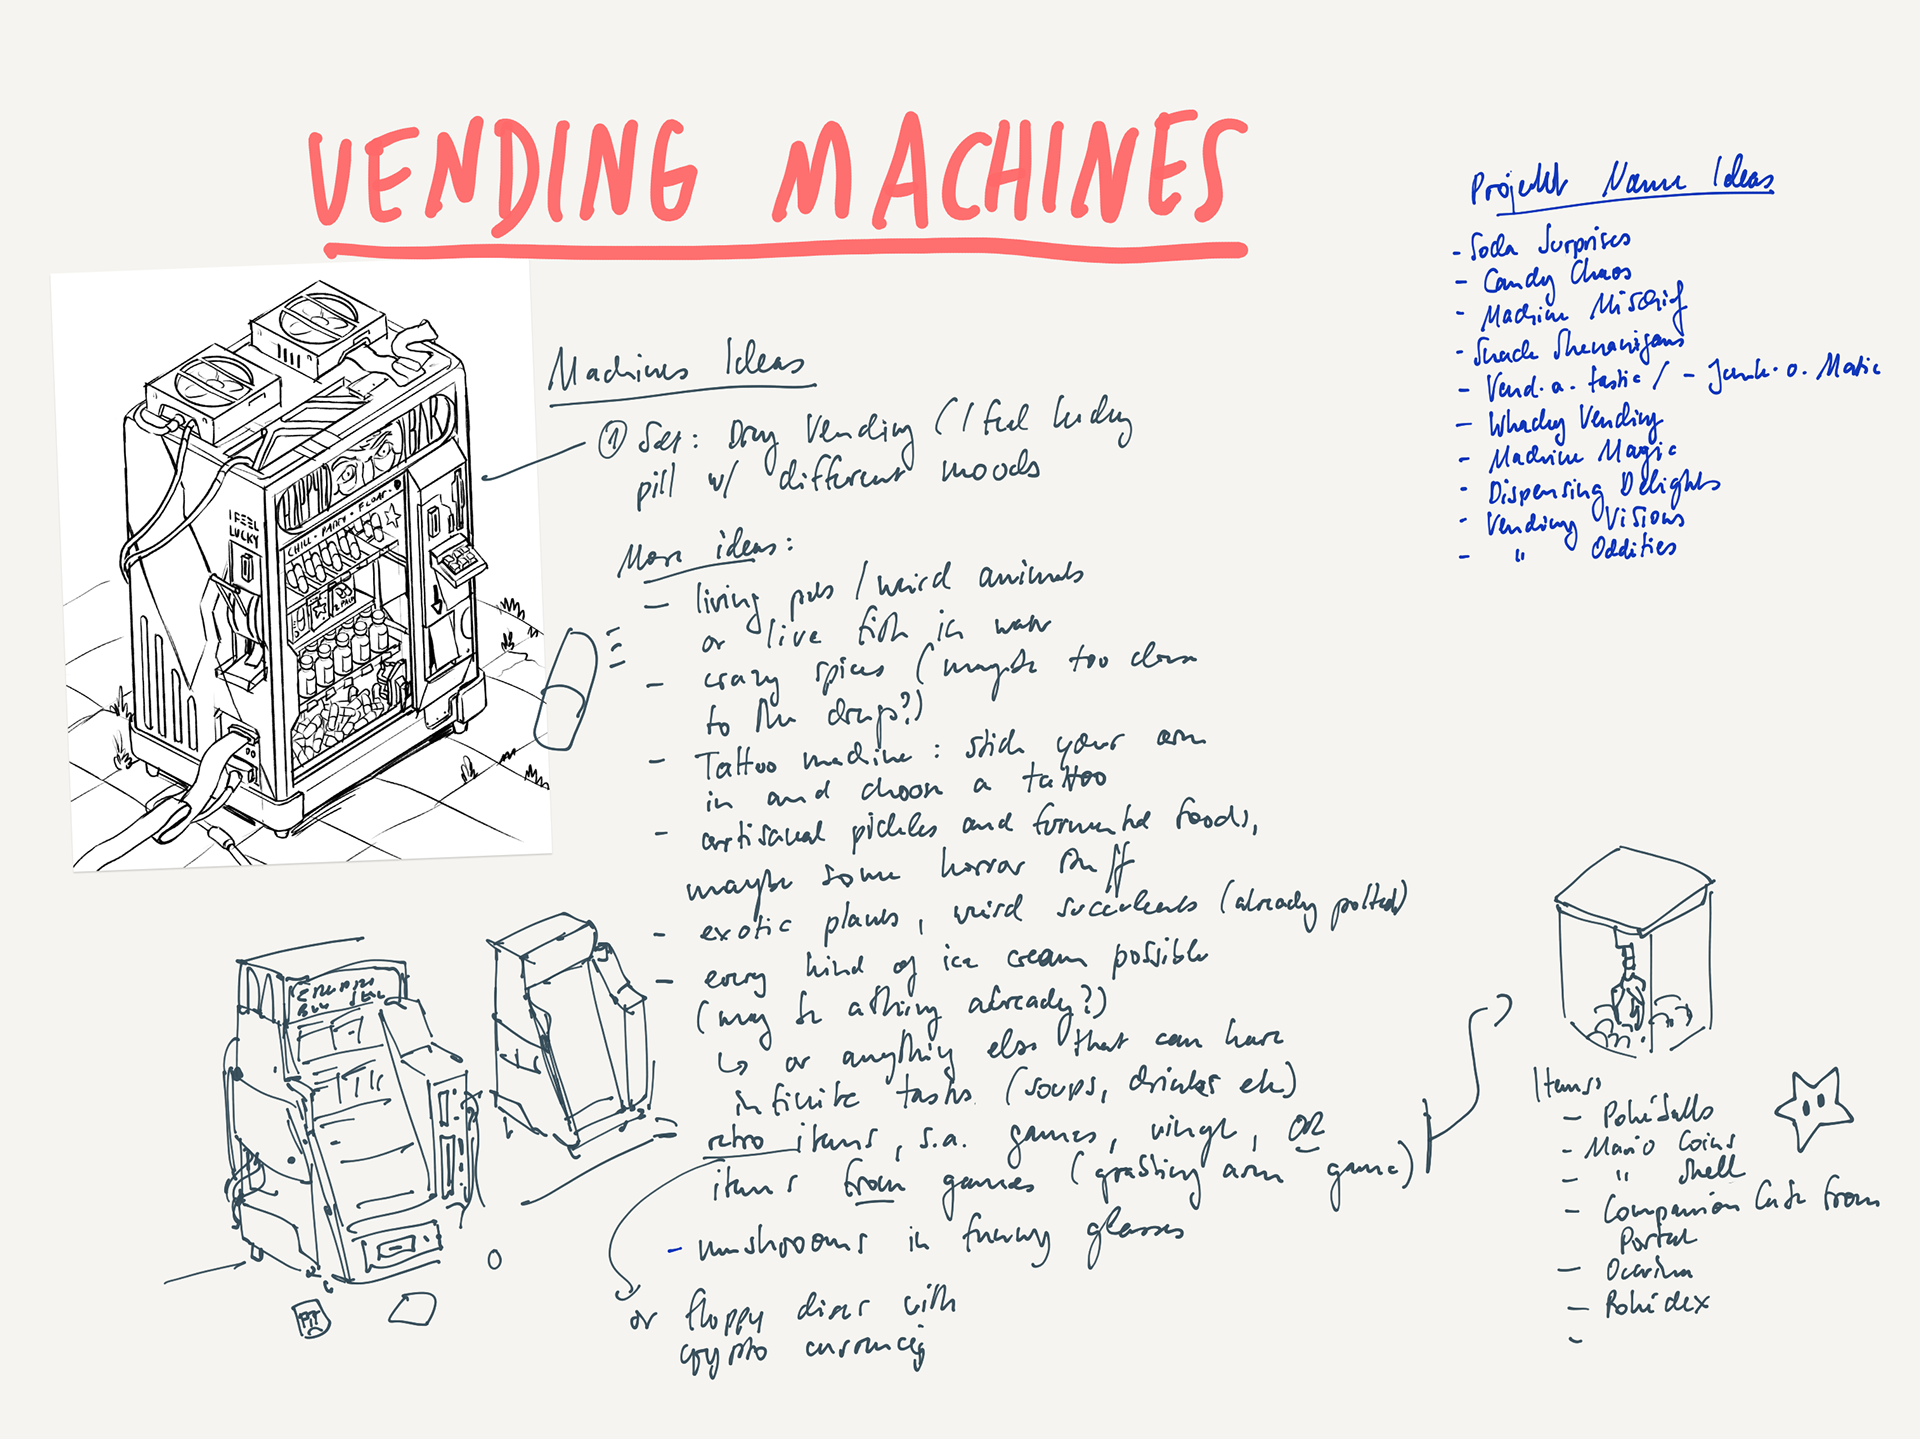 VENDING MACHINES
Projekt Name Ideas
- Soda Surprises
- Candy Chaos
- Machine Mischief
- Snack Shenanigans
- Vend.a.tastic / - Junk.o.Matic
- Whacky Vending
- Machine Magic
- Dispensing Delights
- Vending Visions
- " Oddities
Machines Ideas
① Set: Drug Vending (I feel lucky
pill w/ different moods
I FEEL
LUCKY
CHILL · PARTY · FLOAT ·
More ideas:
- living pets / weird animals
or live fish in water
- crazy spices (maybe too close
to the drugs?)
- Tattoo machine: stick your arm
in and choose a tattoo
- artisanal pickles and fermented foods,
maybe some horror stuff
- exotic plants, weird succulents (already potted)
- every kind of ice cream possible
(may be a thing already?)
↳ or anything else that can have
infinite tastes (soups, drinks etc)
retro items, s.a. games, vinyl, OR
items from games (grabbing arm game)
- mushrooms in funny glasses
or floppy discs with
crypto currency
Items
- Pokéballs
- Mario Coins
- " Shell
- Companion Cube from
Portal
- Ocarina
- Pokédex
-